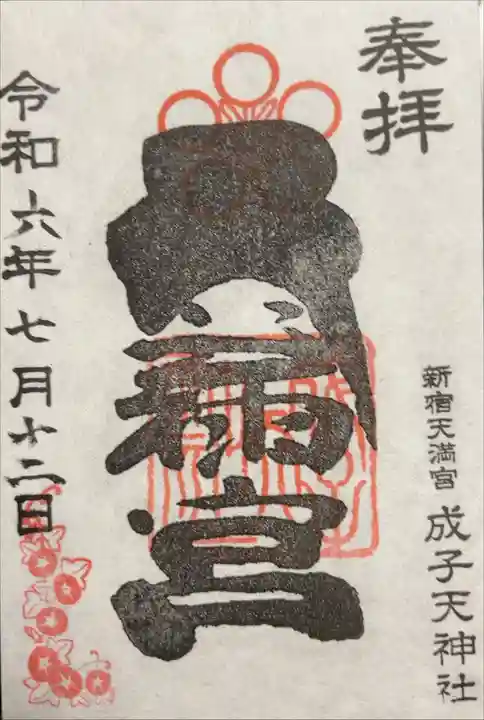 奉拝
新宿天満宮 成子天神社
満宮
令和六年七月十二日